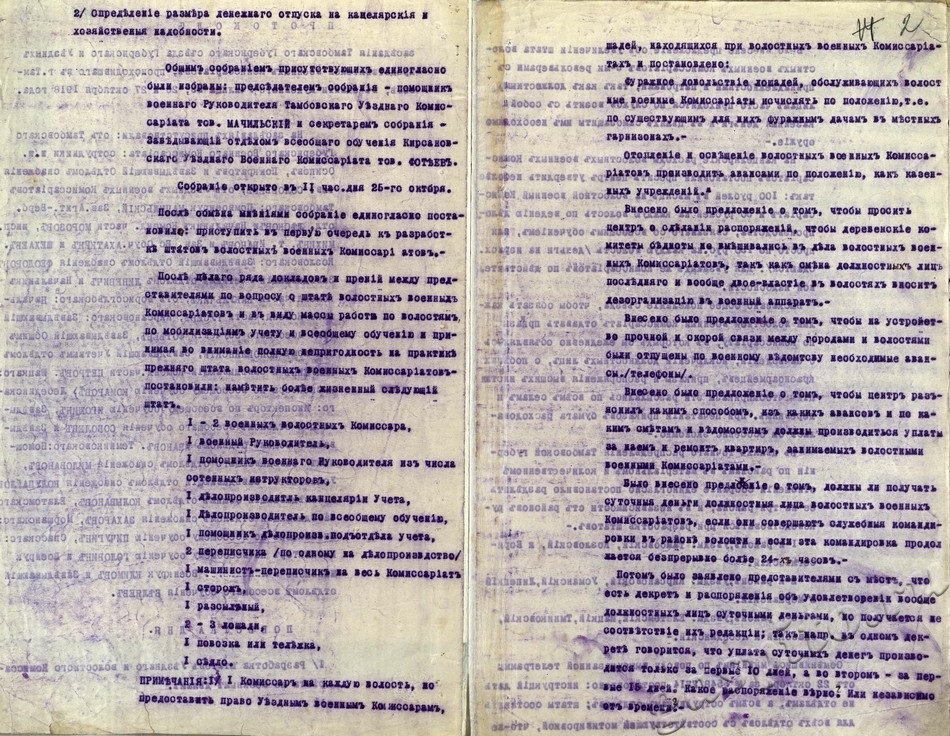 2/ Опредѣленіе размѣра денежнаго отпуска на канцелярскія и
хозяйственыя надобности.
Общимъ собраніемъ присутствующихъ единогласно
были избраны: предсѣдателемъ собранія - помощникъ
военнаго Руководителя Тамбовскаго Уѣзднаго Комис-
саріата тов. МАЧИЛЬСКІЙ и секретаремъ собранія -
Завѣдывающій отдѣломъ всеобщаго обученія Кирсанов-
скаго Уѣзднаго Военнаго Комиссаріата тов. ФОТѢЕВЪ.
Собраніе открыто въ II час.дня 25-го октбря.
Послѣ обмѣна мнѣніями собраніе единогласно поста-
новило: приступить въ первую очередь къ разработ-
кѣ штатовъ волостныхъ военныхъ Комиссарі атовъ.-
Послѣ цѣлаго ряда докладовъ и преній между пред-
ставителями по вопросу о штатѣ волостныхъ военныхъ
Комиссаріатовъ и въ виду массы работъ по волостямъ,
по мобилизаціямъ учету и всеобщему обученію и при-
нимая во вниманіе полную непригодность на практикѣ
прежняго штата волостныхъ военныхъ Комиссаріатовъ-
постановили: намѣтить болѣе жизненный слѣдующій
штатъ.
I - 2 военныхъ волостныхъ Комиссара,
I военный Руководитель,
I помощникъ военнаго Руководителя изъ числа
сотенныхъ инструкторовъ,
I дѣлопроизводитль канцеляріи Учета,
I Дѣлопроизводитель по всеобщему обученію,
I помощникъ дѣлопроизв.подъотдѣла учета,
2 переписчика /по одному на дѣлопроизводство/
I машинистъ-переписчикъ на весь Комиссаріатъ
I сторожъ,
I разсыльный,
2 - 3 лошади,
I повозка или телѣжка,
I сѣдло.
ПРИМѢЧАНІЯ:I/ I Комиссаръ на каждую волость, но
предоставить право Уѣзднымъ военнымъ Комиссарамъ,
2
шадей, находящихся при волостныхъ военныхъ Комиссаріа-
тахъ и постановлено:
Фуражное довольствіе лошадей, обслуживающихъ волост
ные военные Комиссаріаты исчислять по положенію,т.е.
по существующимъ для нихъ фуражнымъ дачамъ въ мѣстныхъ
гарнизонахъ.-
Отопленіе и освѣщеніе волостныхъ военныхъ Комисса-
ріатовъ производить авансами по положенію, какъ казен-
ныхъ учрежденій.
Внесено было предложеніе о томъ, чтобы просить
центръ о сдѣланіи распоряженій, чтобы деревенскіе ко-
митеты бѣдноты не вмѣшивались въ дѣла волостныхъ воен-
ныхъ Комиссаріатовъ, такъ какъ смѣна должностныхъ лицъ
послѣдняго и вообще двое-властіе въ волостяхъ вноситъ
дезорганизацію въ военный аппаратъ.-
Внесено было предложеніе о томъ, чтобы на устройст-
во прочной и скорой связи между городами и волостями
были отпущены по военному вѣдомтсву необходимые аван-
сы./телефоны/.-
Внесено было предложеніе о томъ, чтобы центръ разъ-
яснилъ какимъ способомъ, изъ какихъ авансовъ и по ка-
кимъ смѣтамъ и вѣдомостямъ должны производиться уплаты
за наемъ и ремонтъ квартиръ, занимаемыхъ волостными
военными Комиссаріатами.-
Было внесено предложеніе о томъ, должны ли получать
суточныя деньги должностныя лица волостныхъ военныхъ
Комиссаріатовъ, если они совершаютъ служебныя команди-
ровки въ районѣ волости и если эта командировка продол
жается безпрерывно болѣе 24-хъ часовъ.-
Потомъ было заявлено представителями съ мѣстъ, что
есть декретъ и распоряженія объ удовлетвореніи вообще
должностныхъ лицъ суточными деньгами, но получается не
соотвѣтствіе ихъ редакціи; такъ напр. въ одномъ дек-
ретѣ говорится, что уплата суточныхъ денегъ произво-
дится только за первые 10 дней, а во второмъ - за пер-
вые 15 дней. Какое распоряженіе вѣрно? Или независимо
отъ времени?